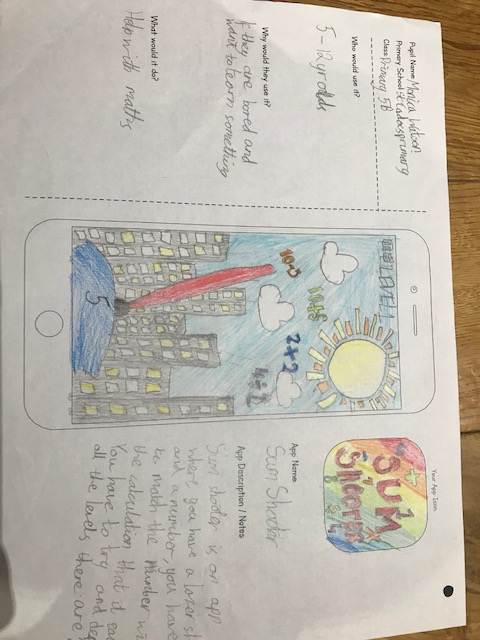 Pupil Name Monica Watson!
Primary School St Cadocs primary
Class Primary 5B
Who would use it?
5-12 yr olds
Why would they use it?
if they are bored and
want to learn something
What would it do?
Help with maths
LEVEL 1
10-5
2x2
5
Your App Icon
SUM
SHOOTER
App Name:
Sum Shooter
App Description / Notes
Sum shooter is an app
where you have a lazer sh
and a number, you have
to match the number wi
the calculation that it eq
You have to try and de
all the levels there are